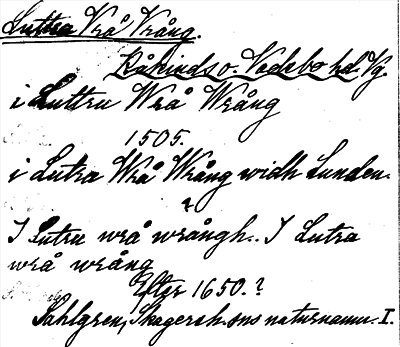 Luttra Vrå Vrång.
Kåkinds o. Vadsbo hd. Vg.
i Luttru Wrå Wrång
1505.
i Lutra Wrå Wrång widh Lunden.
?
I Lutru wrå wrångh. I Lutra
wrå wrång
Efter 1650.?
Sahlgren, Skagersh. sns naturnamn. I.